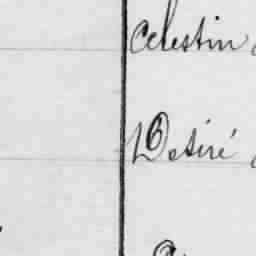 Celestin
Désiré